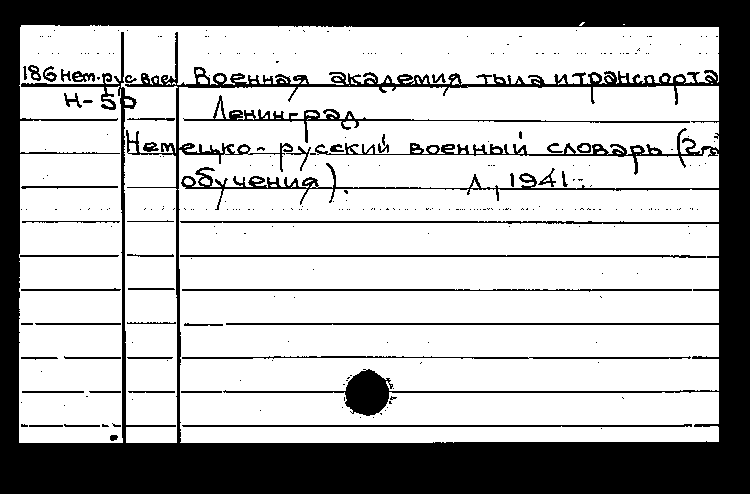 186 Нем.-рус. воен. Военная академия тыла и транспорта
Н-50 Ленинград.
Немецко-русский военный словарь (2 год
обучения). Л., 1941.